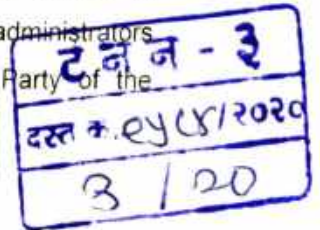 administrators
Party of the
ट न न - ३
दस्त क्र. /२०२०
३ / २०